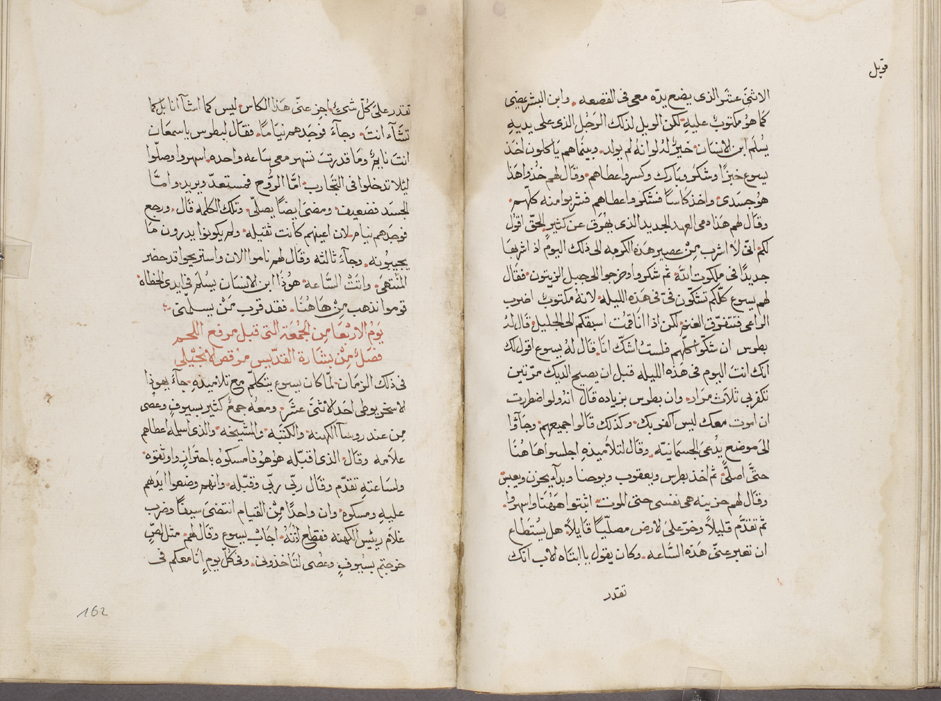 قوبل
الاثنى عشر الذى يضع يده معى فى القصعه وابن البشر يمضى
كما هو مكتوب عليه لكن الويل لذلك الرجل الذى على يديه
يسلم ابن الانسان خير له لو انه لم يولد وبينما هم ياكلون اخذ
يسوع خبزا وشكر وبارك وكسر واعطاهم وقال لهم خذوا هذا
هو جسدى واخذ كاسا فشكر واعطاهم فشربوا منه كلهم
وقال لهم هذا دمى العهد الجديد الذى يهرق عن كثير الحق اقول
لكم انى لا اشرب من عصير هذه الكرمه الى ذلك اليوم اذ اشربها
جديدا فى ملكوت الله ثم شكر وخرجوا الى جبل الزيتون فقال
لهم يسوع كلكم تشكون فىّ فى هذه الليله لانه مكتوب اضرب
الراعى فتتفرق الغنم لكن اذا انا قمت اسبقكم الى الجليل قال له
بطرس ان شكوا كلهم فلست اشك انا قال له يسوع اقول لك
انك انت اليوم فى هذه الليله قبل ان يصيح الديك مرتين
تكفر بى ثلاث مرار وان بطرس بزياده قال انه لو اضطررت
ان اموت معك ليس اكفر بك وكذلك قالوا جميعهم وجاؤا
الى موضع يدعى الجسمانيه وقال لتلاميذه اجلسوا هاهنا
حتى اصلى ثم اخذ بطرس ويعقوب ويوحنا وبدا يحزن ويعبس
وقال لهم حزينه هى نفسى حتى الموت اثبتوا ههنا واسهروا
ثم تقدم قليلا وخر على الارض مصليا قايلا هل يستطاع
ان تعبر عنى هذه الساعه وكان يقول يا ابتاه الاب انك
تقدر
تقدر على كل شى اجز عنى هذا الكاس ليس كما اشا انا بل كما
تشاء انت وجاء فوجدهم نياما فقال لبطرس يا سمعان
انت نايم وما قدرت تسهر معى ساعه واحده اسهروا وصلوا
ليلا تدخلوا فى التجارب اما الروح فمستعد ويريد واما
الجسد فضعيف ومضى ايضا يصلى وتلك الكلمه قال ورجع
فوجدهم نيام لان اعينهم كانت ثقيله ولم يكونوا يدرون ما
يجيبونه وجاء ثالثه وقال لهم ناموا الان واستريحوا قد حضر
المنتهى واتت الساعه هوذا ابن الانسان يسلم فى ايدى الخطاه
قوموا نذهب من هاهنا فقد قرب من يسلمنى
يوم الاربعا من الجمعة التى قبل مرفع اللحم
فصل من بشارة القديس مرقص الانجيلى
فى ذلك الزمان لما كان يسوع يتكلم مع تلاميذه جاء يهوذا
الاسخريوطى احد الاثنى عشر ومعه جمع كثير بسيوف وعصى
من عند روسا الكهنه والكتبه والمشيخه والذى اسلمه اعطاهم
علامه وقال الذى اقبله هو هو فامسكوه باحتراز واوثقوه
ولساعته تقدم وقال ربى ربى وقبله وانهم وضعوا ايديهم
عليه ومسكوه وان واحدا من القيام انتضى سيفا وضرب
غلام رييس الكهنه فقطع اذنه اجاب يسوع وقال لهم مثل اللص
خرجتم بسيوف وعصى لتاخذونى وفى كل يوم انا معكم فى
162